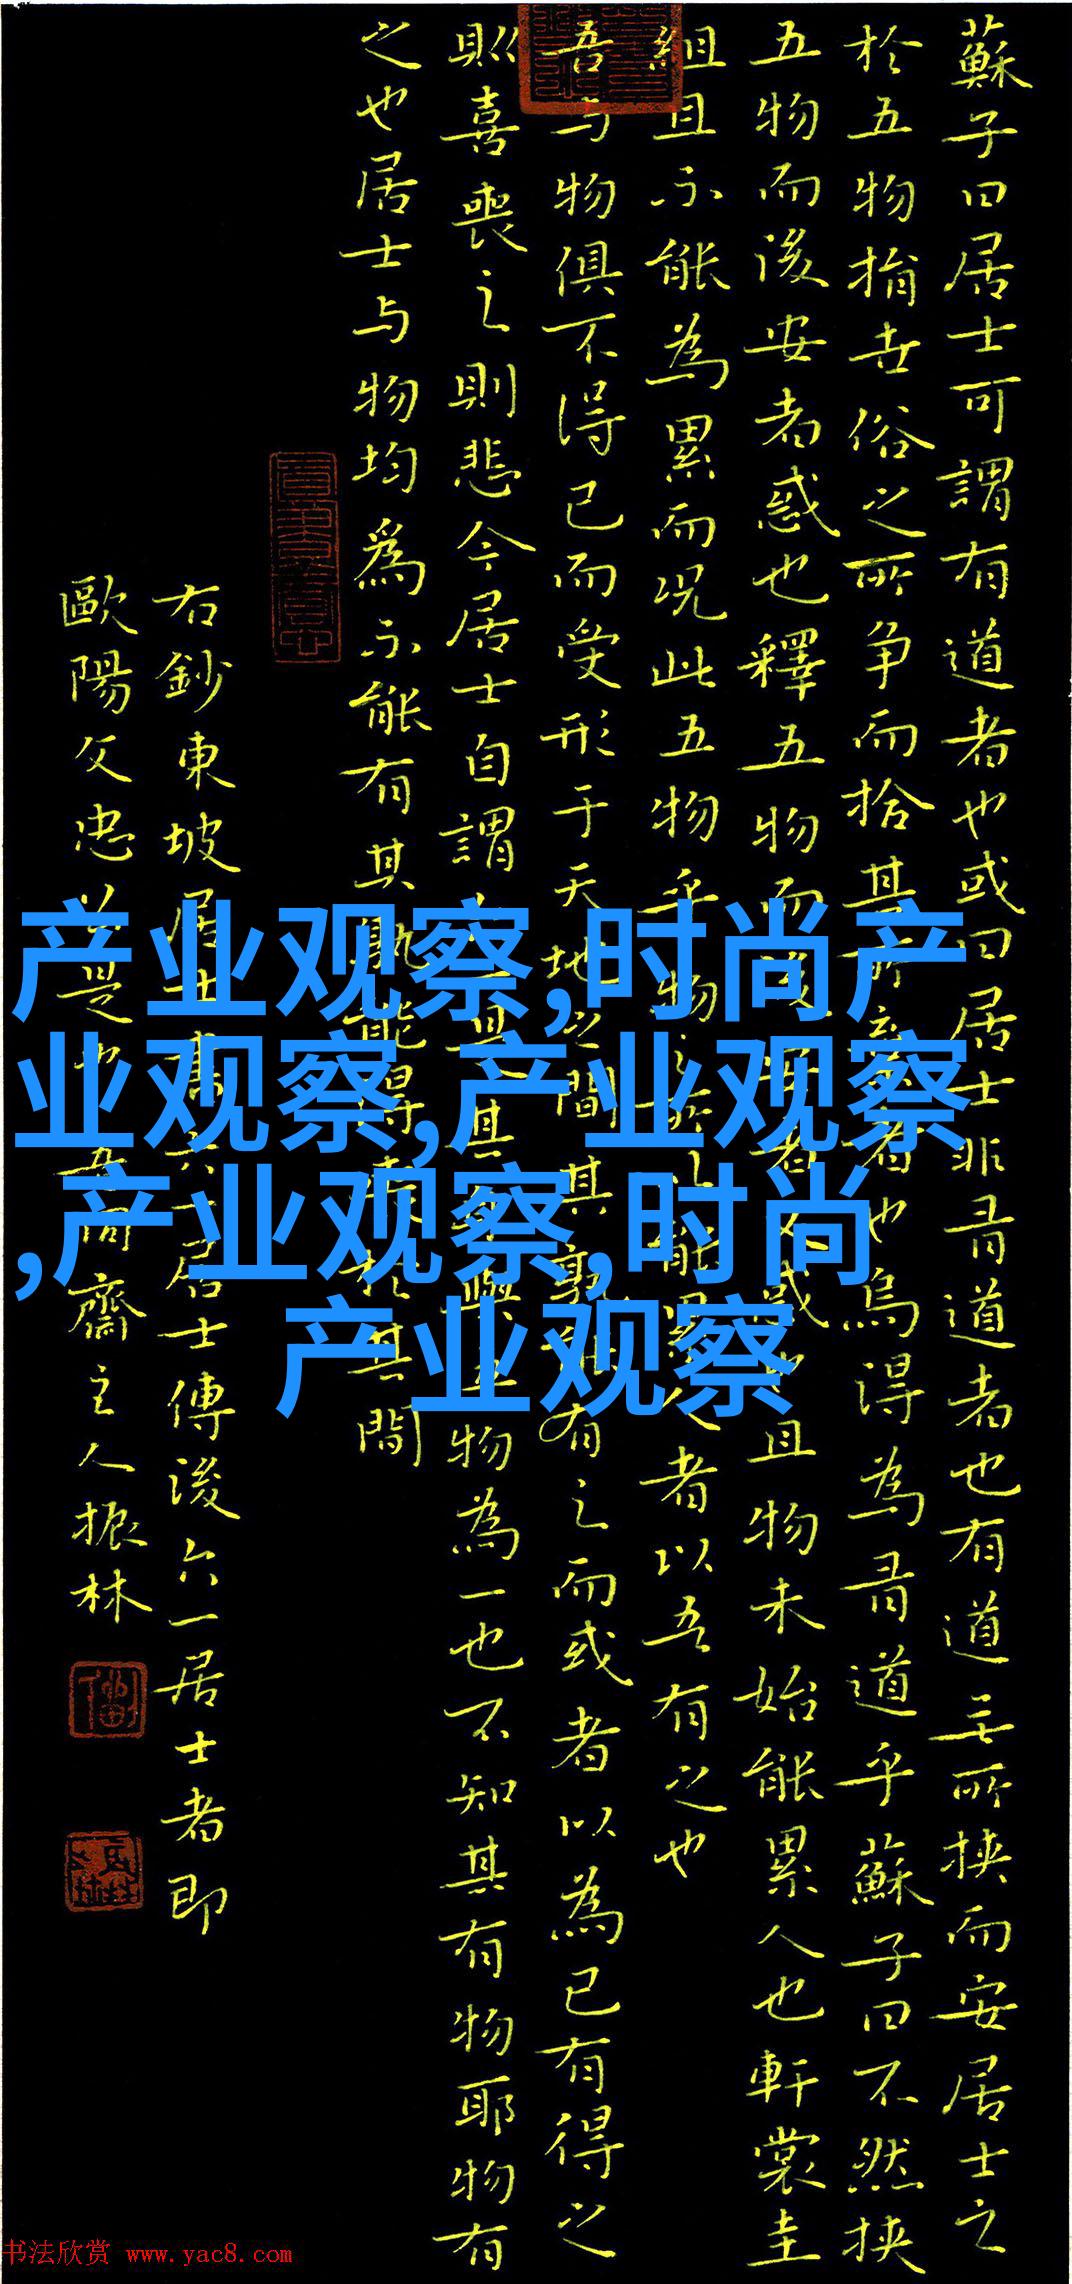 蘇子曰居士可謂有道者也或曰居士非有道者也有道者無所挾而安居士之
於五物捐世俗之所争而拾其所棄者也烏得為有道乎蘇子曰不然挾
五物而後安者惑也釋五物而後安者又惑也且物未始能累人也軒裳圭
組且不能為累而况此五物乎物之所以能累人者以吾有之也
吾与物俱不得已而受形于天地之間其孰能有之而或者以為己有得之
則喜喪之則悲今居士自謂六一是其身與五物為一也不知其有物耶物有
之也居士与物均為不能有其孰能得喪於其間
右鈔東坡居士書六一居士傳後六一居士者即
歐陽文忠公是也五間齋主人振林
产业观察,时尚产
业观察,产业观察
,产业观察,时尚
产业观察
书法欣赏 www.yac8.com